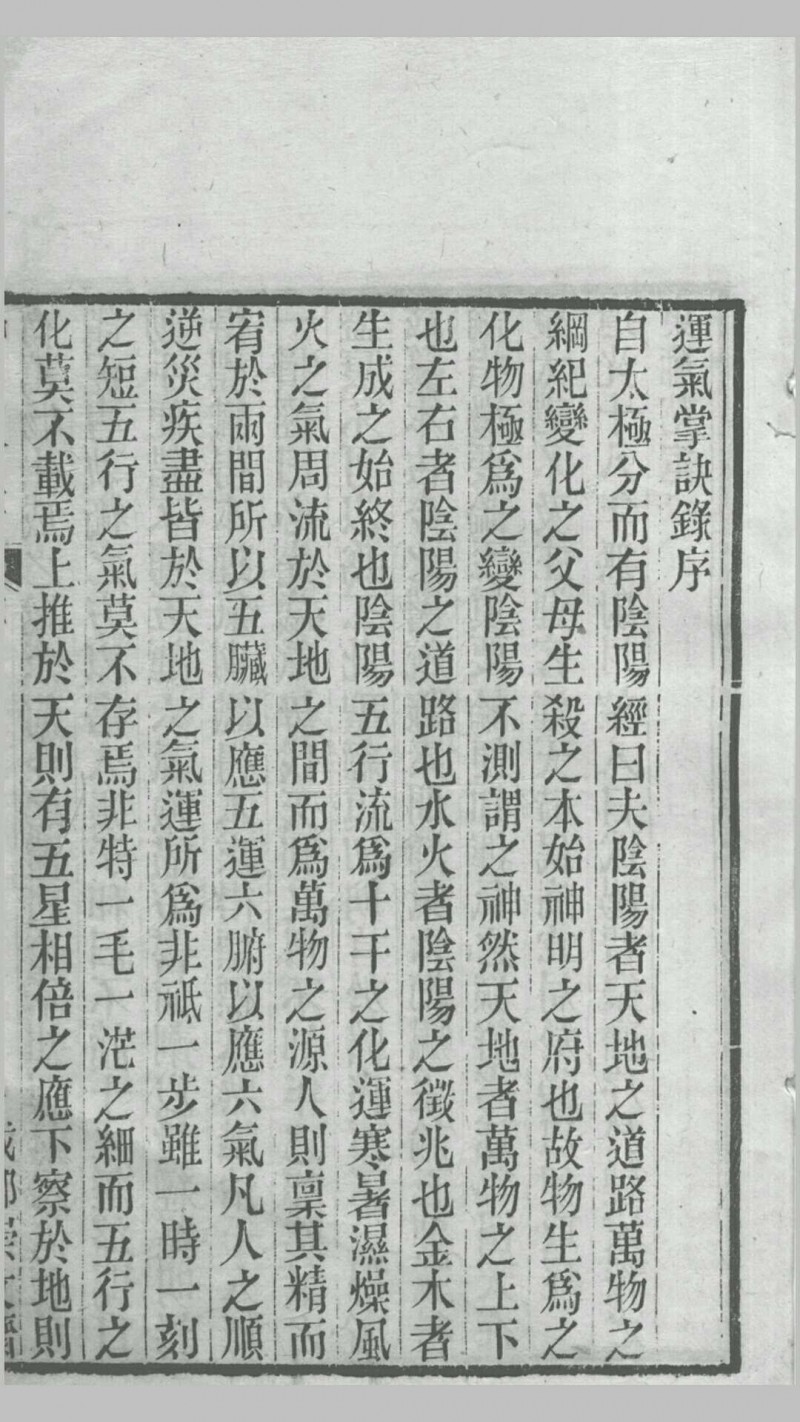 運氣掌訣錄序
自太極分而有陰陽經曰夫陰陽者天地之道路萬物之
綱紀變化之父母生殺之本始神明之府也故物生爲之
化物極爲之變陰陽不測謂之神然天地者萬物之上下
也左右者陰陽之道路也水火者陰陽之徵兆也金木者
生成之始終也陰陽五行流爲十干之化運寒暑濕燥風
火之氣周流於天地之間而爲萬物之源人則稟其精而
宥於兩間所以五臟以應五運六腑以應六氣凡人之順
逆災疾盡皆於天地之氣運所爲非祗一步雖一時一刻
之短五行之氣莫不存焉非特一毛一茫之細而五行之
化莫不載焉上推於天則有五星相倍之應下察於地則